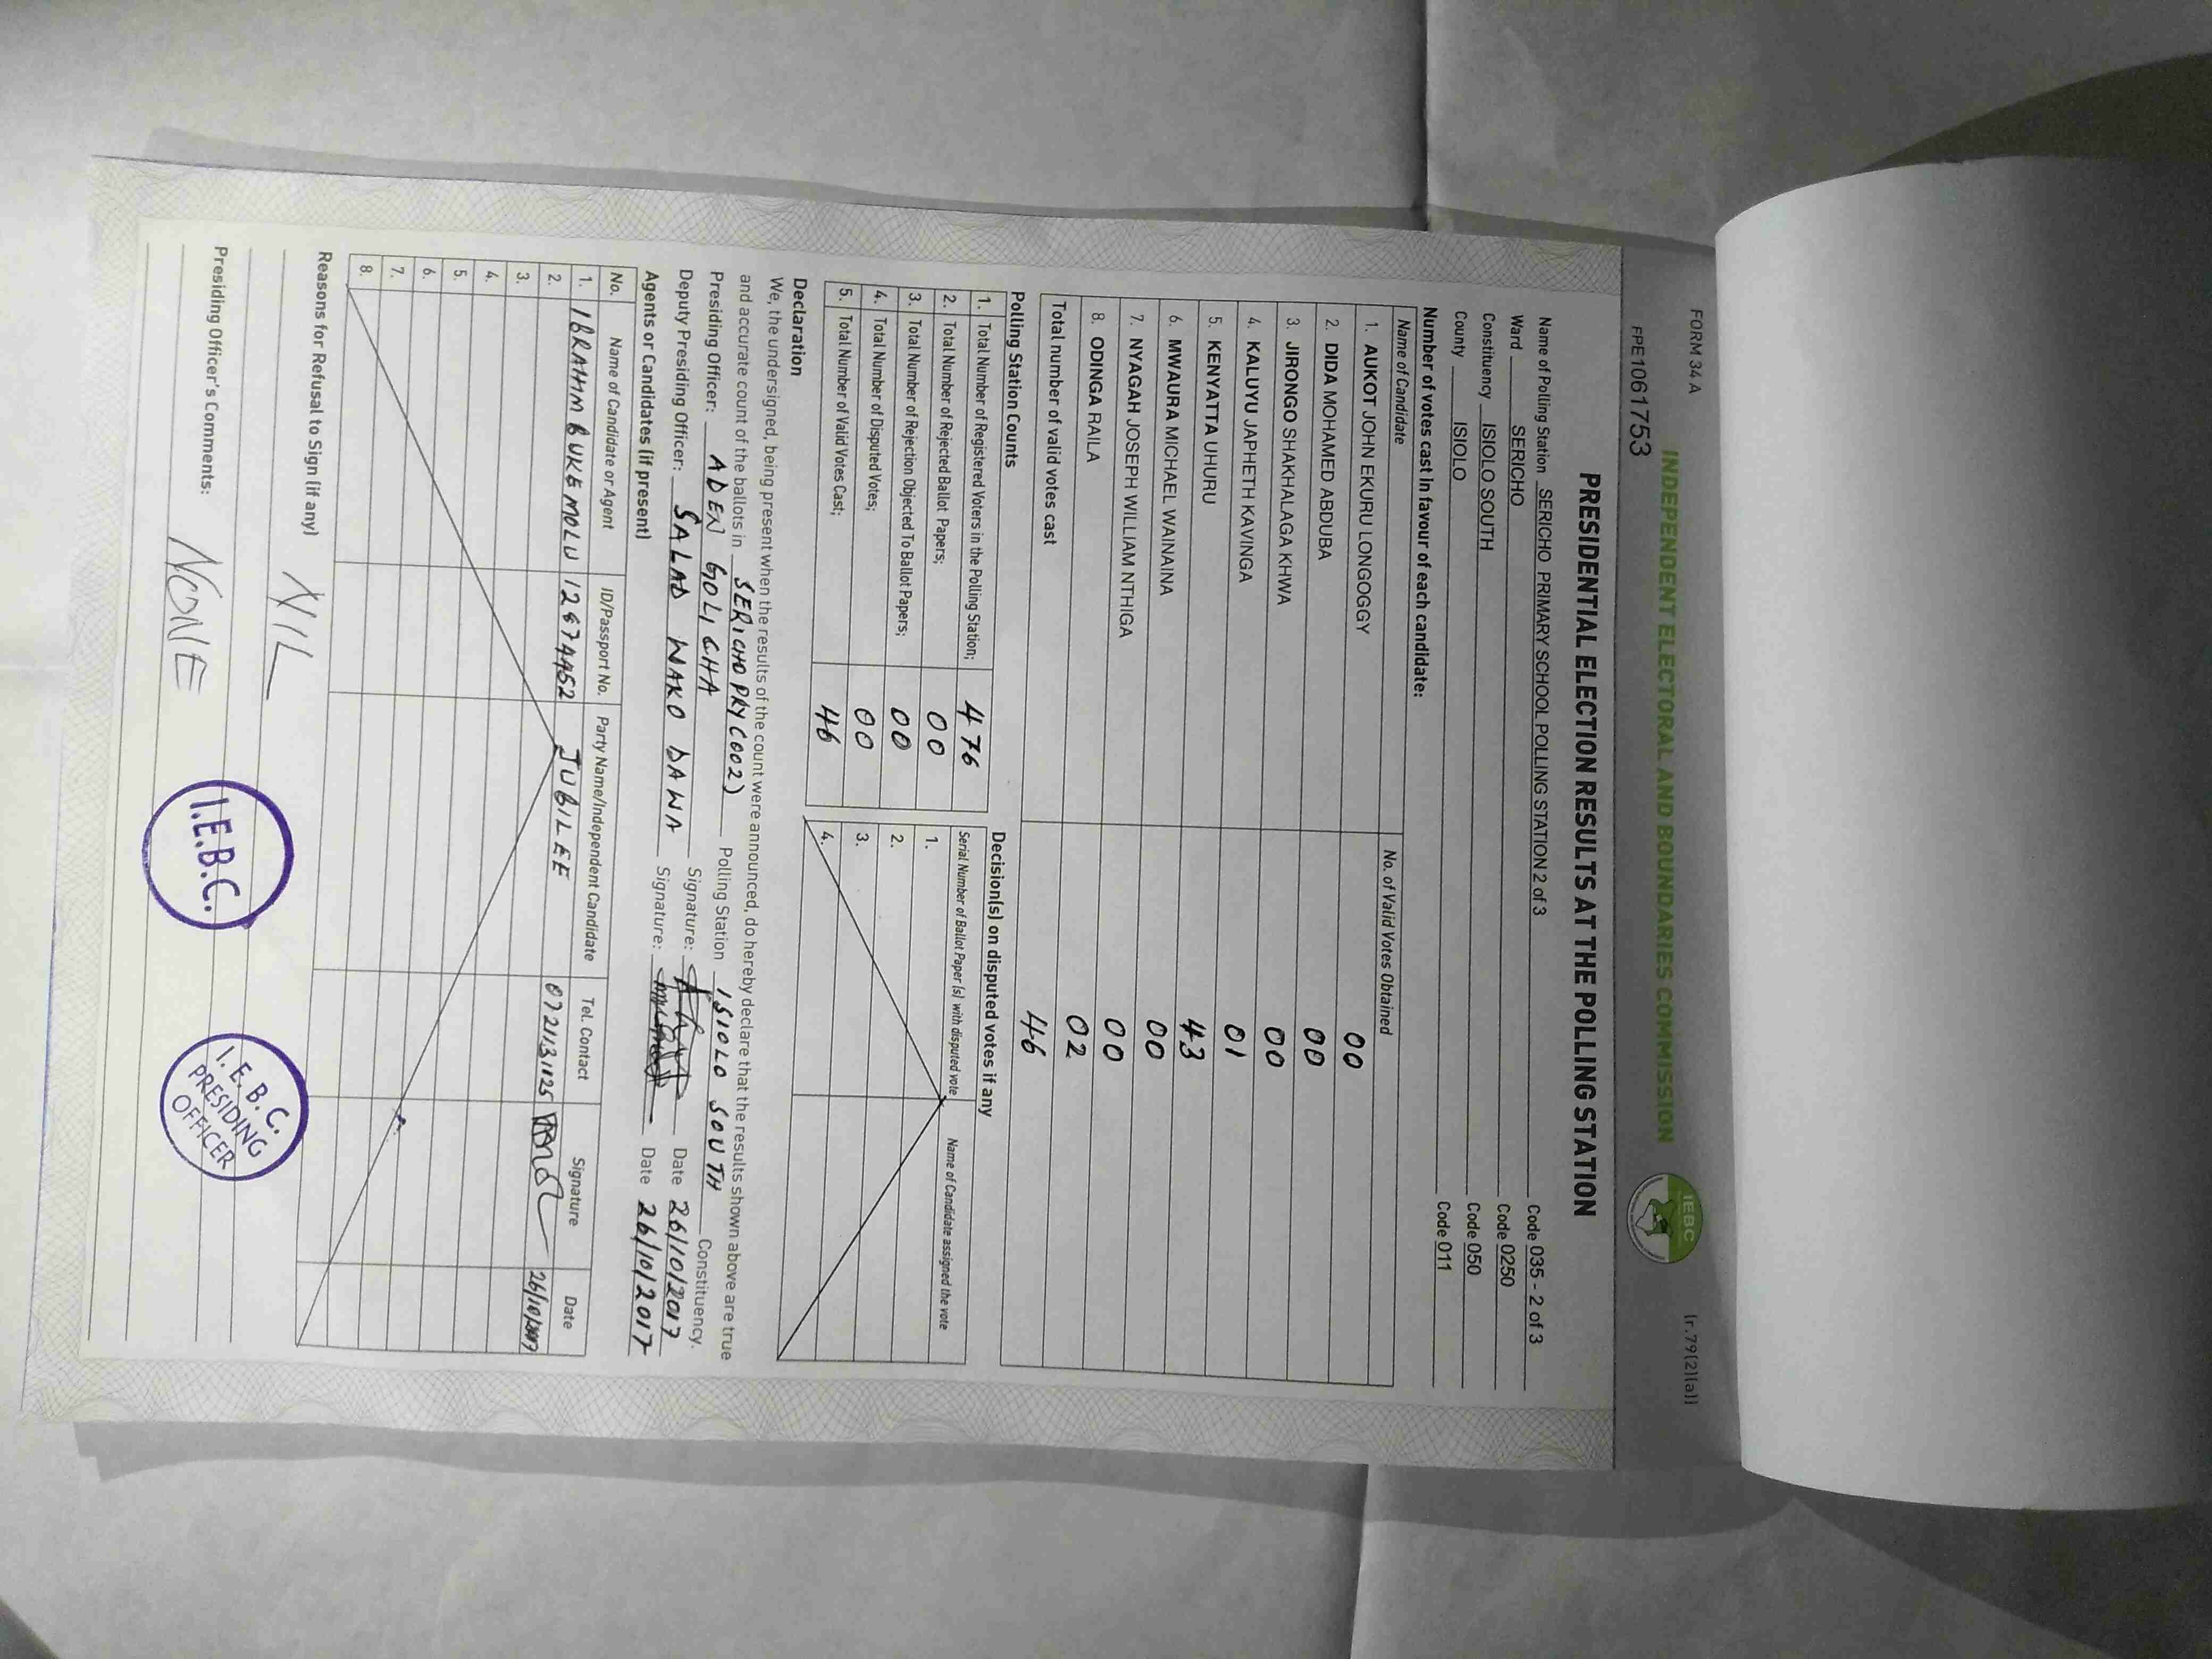 FORM 34 A (r.79(2)(a))
INDEPENDENT ELECTORAL AND BOUNDARIES COMMISSION
IEBC
PPE1061753
PRESIDENTIAL ELECTION RESULTS AT THE POLLING STATION
Name of Polling Station SERICHO PRIMARY SCHOOL POLLING STATION 2 of 3 Code 035 - 2 of 3
Ward SERICHO Code 0250
Constituency ISIOLO SOUTH Code 050
County ISIOLO Code 011
Number of votes cast in favour of each candidate:
Name of Candidate No. of Valid Votes Obtained
1. AUKOT JOHN EKURU LONGOGGY 00
2. DIDA MOHAMED ABDUBA 00
3. JIRONGO SHAKHALAGA KHWA 00
4. KALUYU JAPHETH KAVINGA 01
5. KENYATTA UHURU 43
6. MWAURA MICHAEL WAINAINA 00
7. NYAGAH JOSEPH WILLIAM NTHIGA 00
8. ODINGA RAILA 02
Total number of valid votes cast 46
Polling Station Counts
1. Total Number of Registered Voters in the Polling Station; 476
2. Total Number of Rejected Ballot Papers; 00
3. Total Number of Rejection Objected To Ballot Papers; 00
4. Total Number of Disputed Votes; 00
5. Total Number of Valid Votes Cast; 46
Decision(s) on disputed votes if any
Serial Number of Ballot Paper (s) with disputed vote Name of Candidate assigned the vote
1.
2.
3.
4.
Declaration
We, the undersigned, being present when the results of the count were announced, do hereby declare that the results shown above are true
and accurate count of the ballots in SERICHO PRY (002) Polling Station ISIOLO SOUTH Constituency.
Presiding Officer: ADEN GOLICHA Signature: Date 26/10/2017
Deputy Presiding Officer: SALAD WAKO DAWA Signature: Date 26/10/2017
Agents or Candidates (if present)
No. Name of Candidate or Agent ID/Passport No. Party Name/Independent Candidate Tel. Contact Signature Date
1. IBRAHIM BUKE MOLU 12674452 JUBILEE 0721131125 26/10/2017
2.
3.
4.
5.
6.
7.
8.
Reasons for Refusal to Sign (if any) NIL
Presiding Officer's Comments: NONE
I.E.B.C.
I. E. B. C.
PRESIDING
OFFICER